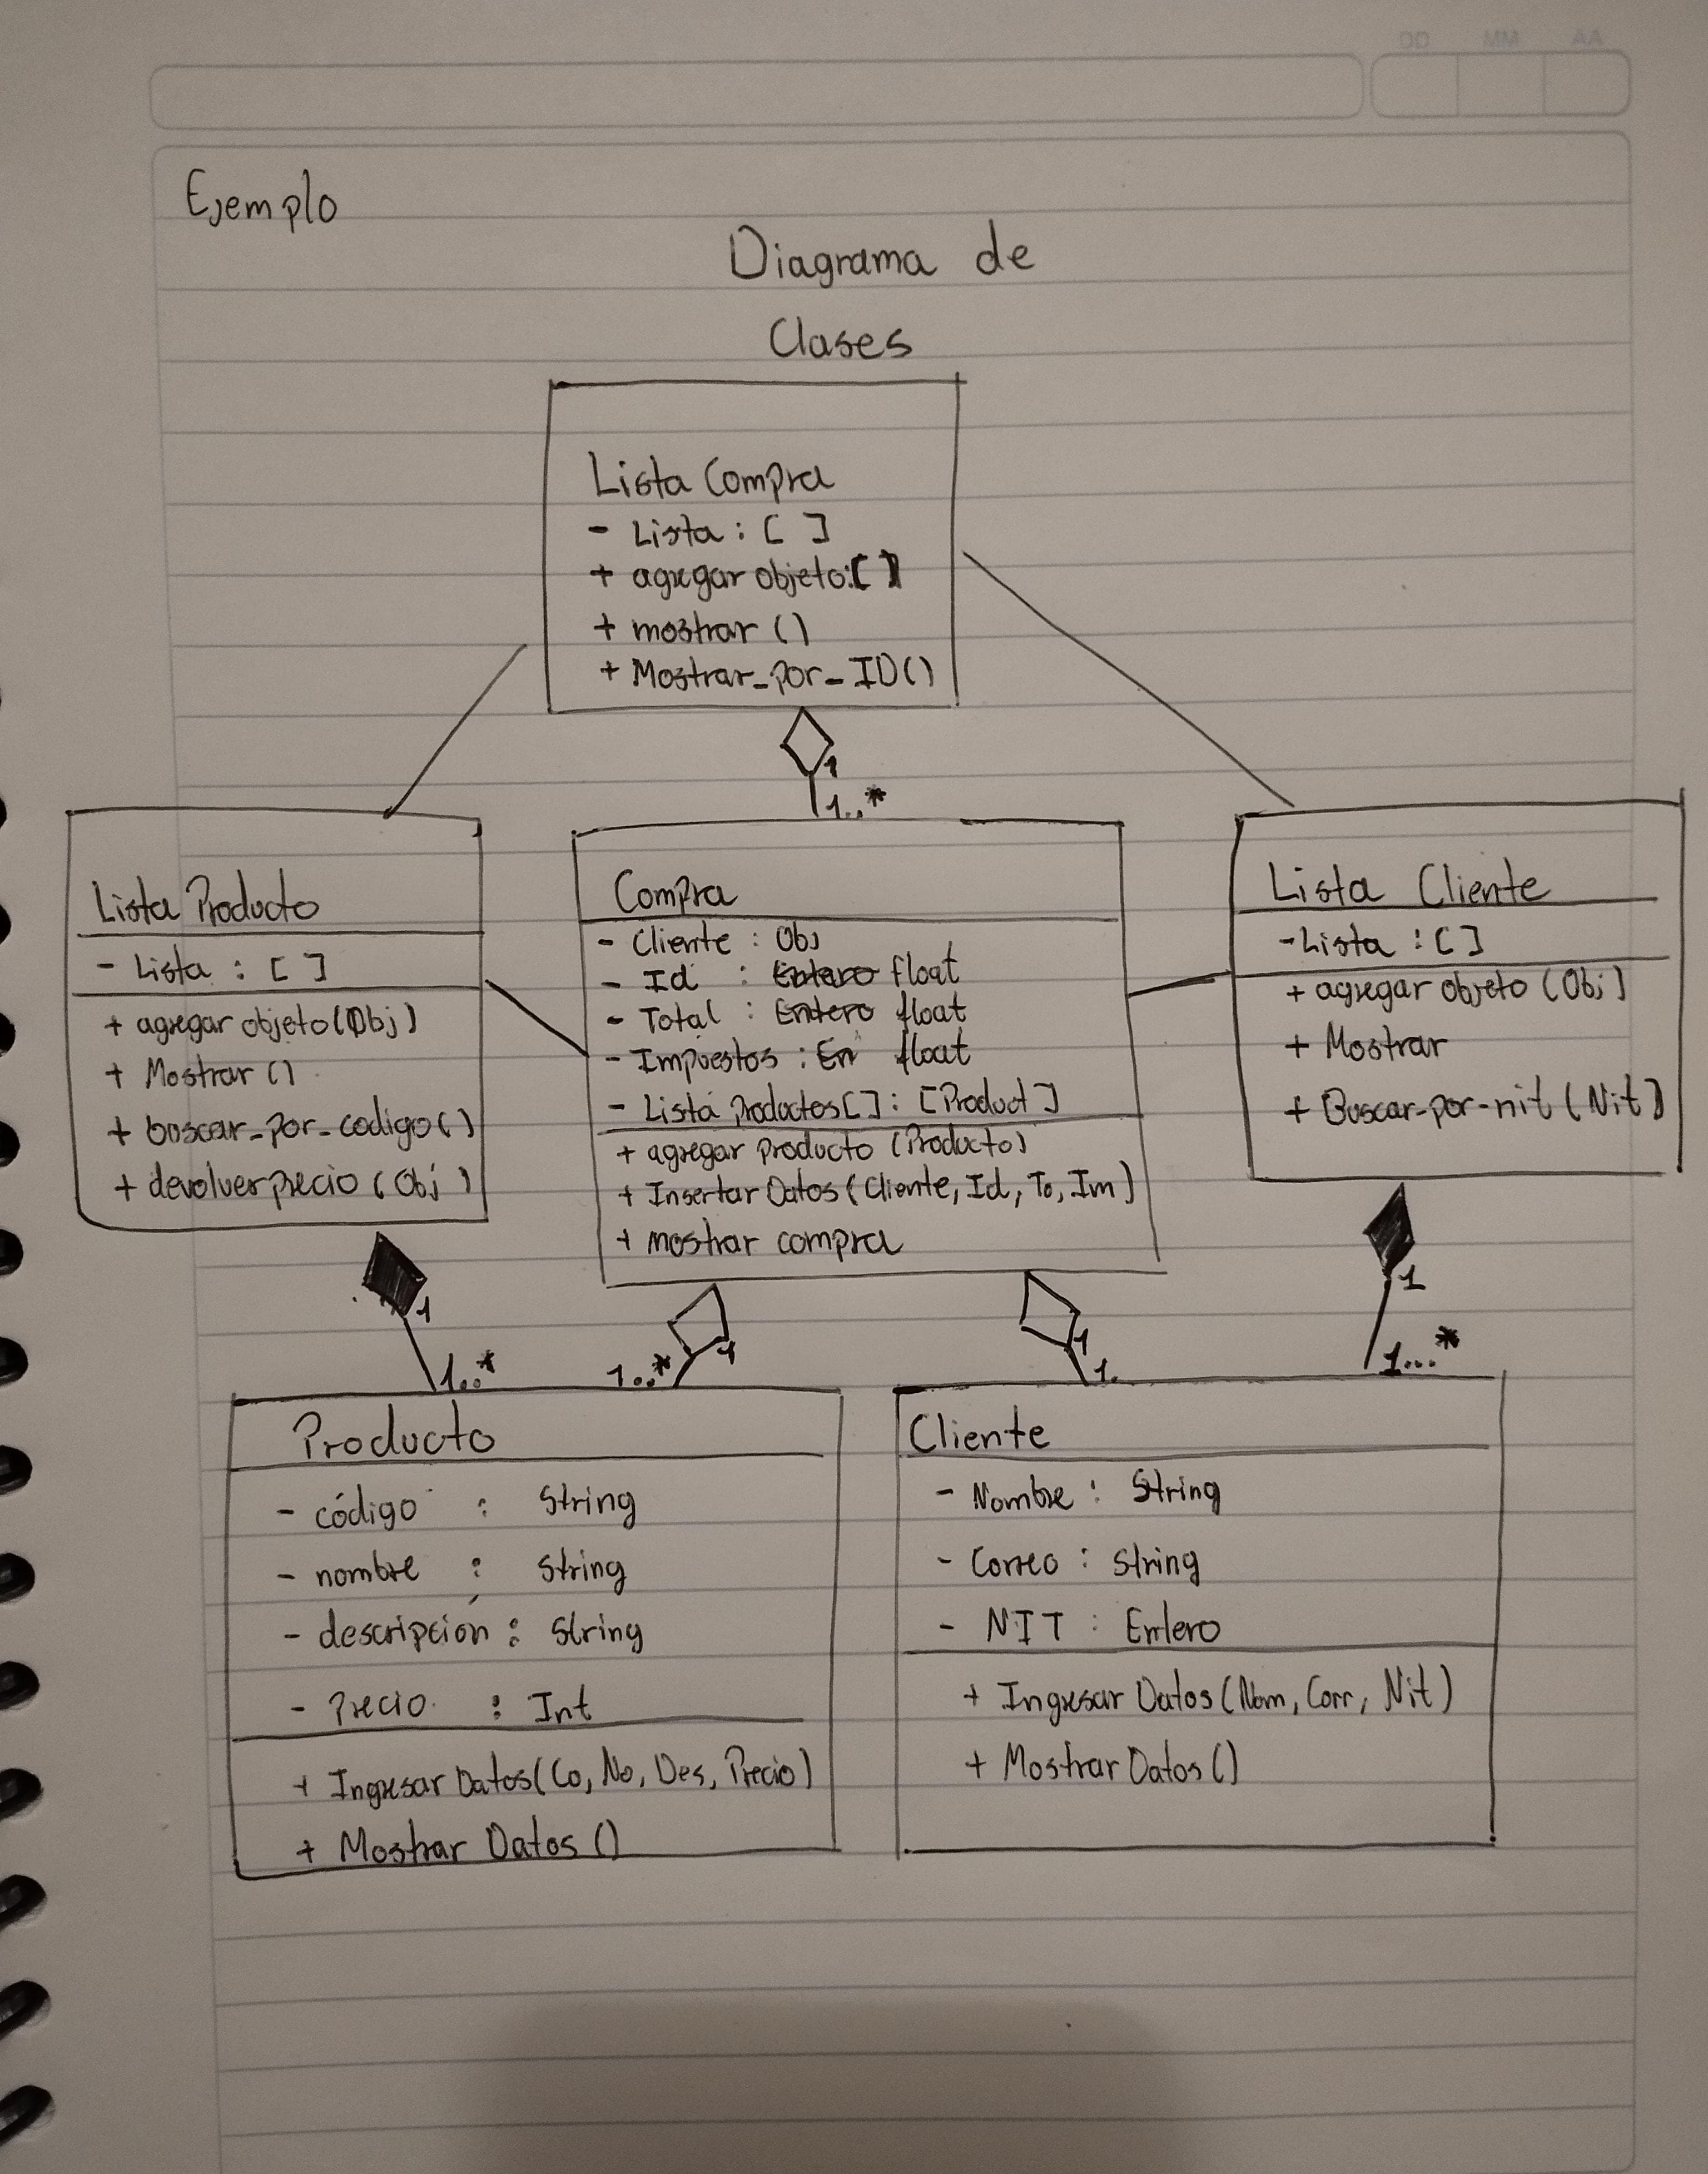 DD MM AA
Ejemplo
Diagrama de
Clases
Lista Compra
- Lista : [ ]
+ agregar objeto:[ ]
+ mostrar ()
+ Mostrar_por_ID()
1
1..*
Lista Producto
- Lista : [ ]
+ agregar objeto(Obj)
+ Mostrar ()
+ buscar_por_codigo()
+ devolver precio (Obj)
Compra
- Cliente : Obj
- Id : Entero float
- Total : Entero float
- Impuestos : En float
- Lista productos[] : [Product]
+ agregar producto (Producto)
+ Insertar Datos (Cliente, Id, To, Im)
+ mostrar compra
Lista Cliente
- Lista : [ ]
+ agregar objeto (Obj)
+ Mostrar
+ Buscar-por-nit (Nit)
1
1..*
1
1..*
1
1.
1
1...*
Producto
- código : String
- nombre : String
- descripción : String
- Precio : Int
+ Ingresar Datos(Co, No, Des, Precio)
+ Mostrar Datos ()
Cliente
- Nombre : String
- Correo : String
- NIT : Entero
+ Ingresar Datos (Nom, Corr, Nit)
+ Mostrar Datos ()